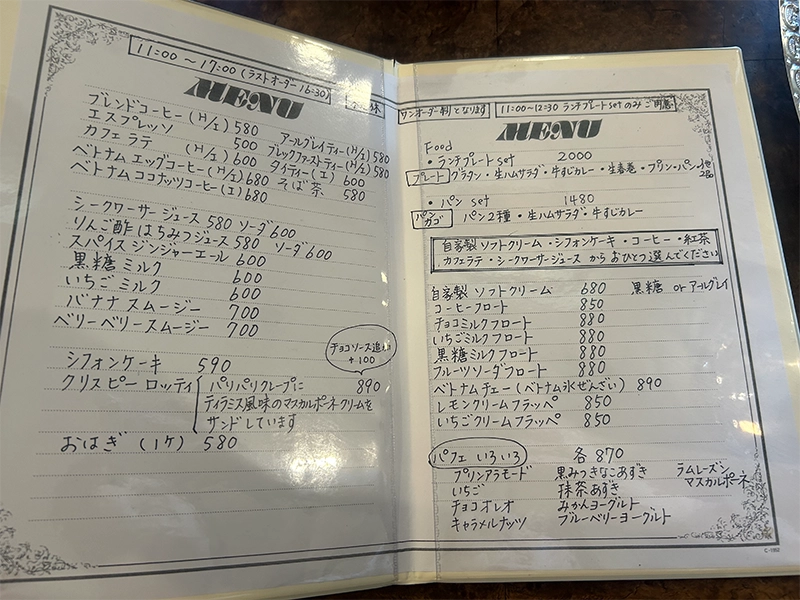 11:00 〜17:00 (ラストオーダー 16:30)
MENU
ブレンドコーヒー (H/I) 580
エスプレッソ 500
カフェラテ (H/I) 600
ベトナム エッグコーヒー (H/I) 680
ベトナム ココナッツコーヒー (I) 680
アールグレイティー (H/I) 580
ブレックファスティー (H/I) 580
タイティー (I) 600
そば茶 580
シークワーサージュース 580 ソーダ 600
りんご酢 はちみつジュース 580 ソーダ 600
スパイス ジンジャーエール 600
黒糖ミルク 600
いちごミルク 600
バナナ スムージー 700
ベリーベリースムージー 700
チョコソース追加
+100
シフォンケーキ 590
クリスピー ロッティ パリパリクレープに 890
ティラミス風味のマスカルポーネクリームを
サンドしています
おはぎ (1ケ) 580
ワンオーダー制となります
11:00〜12:30 ランチプレートsetのみご用意
MENU
Food
・ランチプレートset 2000
プレート グラタン・生ハムサラダ・牛すじカレー・生春巻・プリン・パン
・パン set 1480
パンカゴ パン2種・生ハムサラダ・牛すじカレー
自家製 ソフトクリーム・シフォンケーキ・コーヒー・紅茶
カフェラテ・シークワーサージュース からおひとつ選んでください
自家製 ソフトクリーム 680 黒糖 or アールグレイ
コーヒーフロート 850
チョコミルクフロート 880
いちごミルクフロート 880
黒糖ミルクフロート 880
フルーツソーダフロート 880
ベトナムチェー (ベトナム氷ぜんざい) 890
レモンクリームフラッペ 850
いちごクリームフラッペ 850
パフェ いろいろ 各 870
プリンアラモード 黒みつきなこあずき ラムレーズン
いちご 抹茶あずき マスカルポーネ
チョコオレオ みかんヨーグルト
キャラメルナッツ ブルーベリーヨーグルト